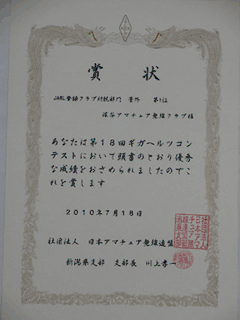 賞状
JARL登録クラブ対抗部門 県外 第1位
深谷アマチュア無線クラブ様
あなたは第18回ギガヘルツコン
テストにおいて頭書のとおり優秀
な成績をおさめられましたのでこ
れを賞します
2010年7月18日
社団法人 日本アマチュア無線連盟
新潟県支部 支部長 川上孝一